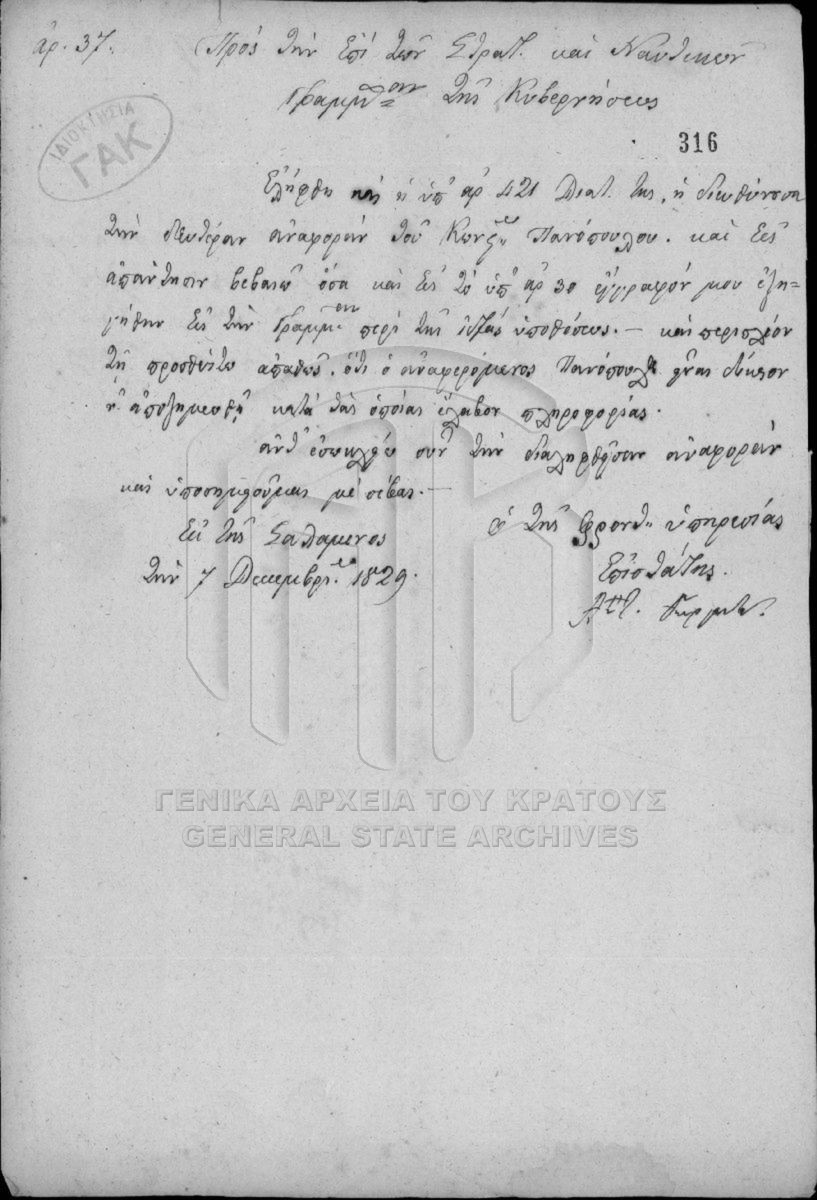 ἀρ. 37. Πρὸς τὴν ἐπὶ τῶν Στρατ. καὶ Ναυτικῶν
Γραμμ^(τείαν) τῆς Κυβερνήσεως
ΙΔΙΟΚΤΗΣΙΑ
ΓΑΚ
316
Ἐλήφθη καὶ ἡ ὑπ' ἀρ 421 Διατ. της, ἡ διευθύνουσα
τὴν δευτέραν ἀναφορὰν τοῦ Πανόπουλου. καὶ εἰς
ἀπάντησιν βεβαιῶ ὅσα καὶ εἰς τὸ ὑπ' ἀρ 30 ἔγγραφόν μου ἐξη-
γήθην εἰς τὴν Γραμμ. περὶ τῆς ὑποθέσεως. — καὶ περιπλέον
ὅτι ὁ ἀναφερόμενος Πανόπουλ
ἀποζημιωθῇ κατὰ τὰς ὁποίας ἔλαβον πληροφορίας.
τὴν διαληφθεῖσαν ἀναφορὰν
καὶ ὑποσημειοῦμαι μὲ σέβας. —
Ἐκ τῆς Σαλαμῖνος
τὴν 7 Δεκεμβρ. 1829.
ὁ τῆς Φροντ. ὑπηρεσίας
Ἐπιστάτης.
ΓΕΝΙΚΑ ΑΡΧΕΙΑ ΤΟΥ ΚΡΑΤΟΥΣ
GENERAL STATE ARCHIVES